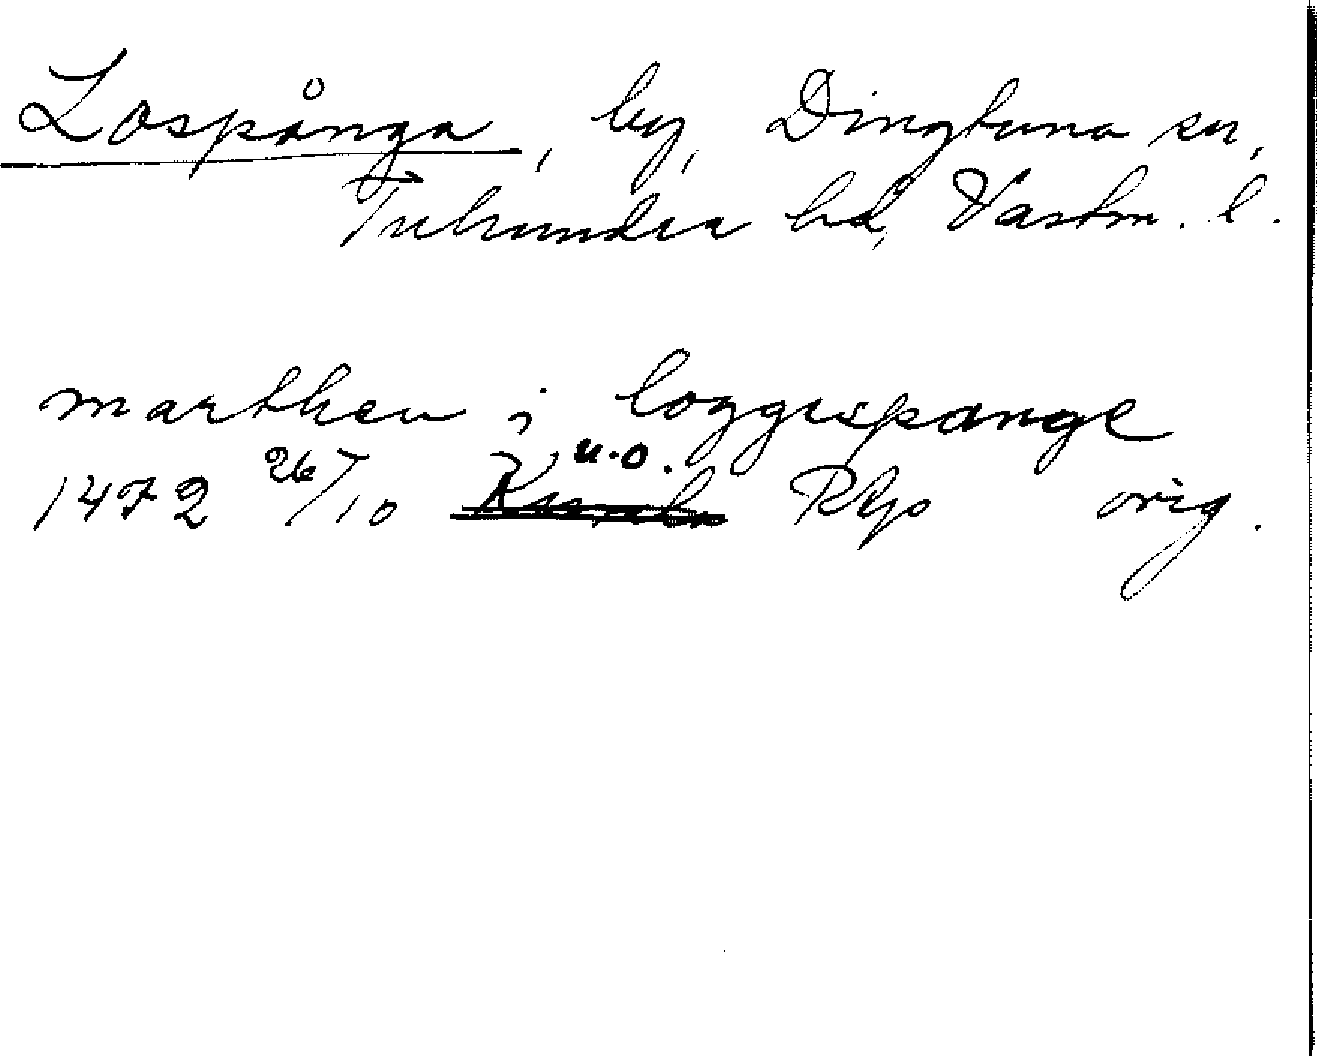 Lospånga, by, Dingtuna sn,
Tuhundra hd, Västm. l.
marthen i loggespange
u.o.
1472 26/10 Kumla RAp orig.